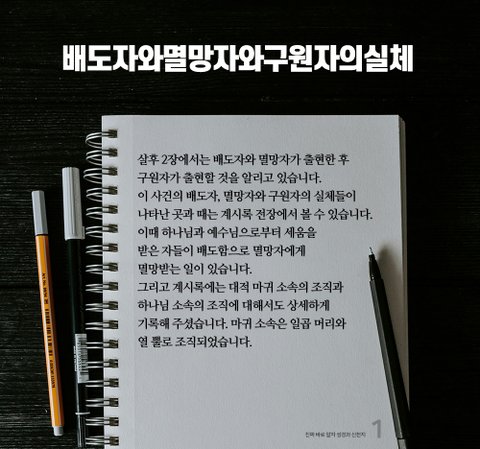 배도자와멸망자와구원자의실체
살후 2장에서는 배도자와 멸망자가 출현한 후
구원자가 출현할 것을 알리고 있습니다.
이 사건의 배도자, 멸망자와 구원자의 실체들이
나타난 곳과 때는 계시록 전장에서 볼 수 있습니다.
이때 하나님과 예수님으로부터 세움을
받은 자들이 배도함으로 멸망자에게
멸망받는 일이 있습니다.
그리고 계시록에는 대적 마귀 소속의 조직과
하나님 소속의 조직에 대해서도 상세하게
기록해 주셨습니다. 마귀 소속은 일곱 머리와
열 뿔로 조직되었습니다.
진짜 바로 알자 성경과 신천지
1